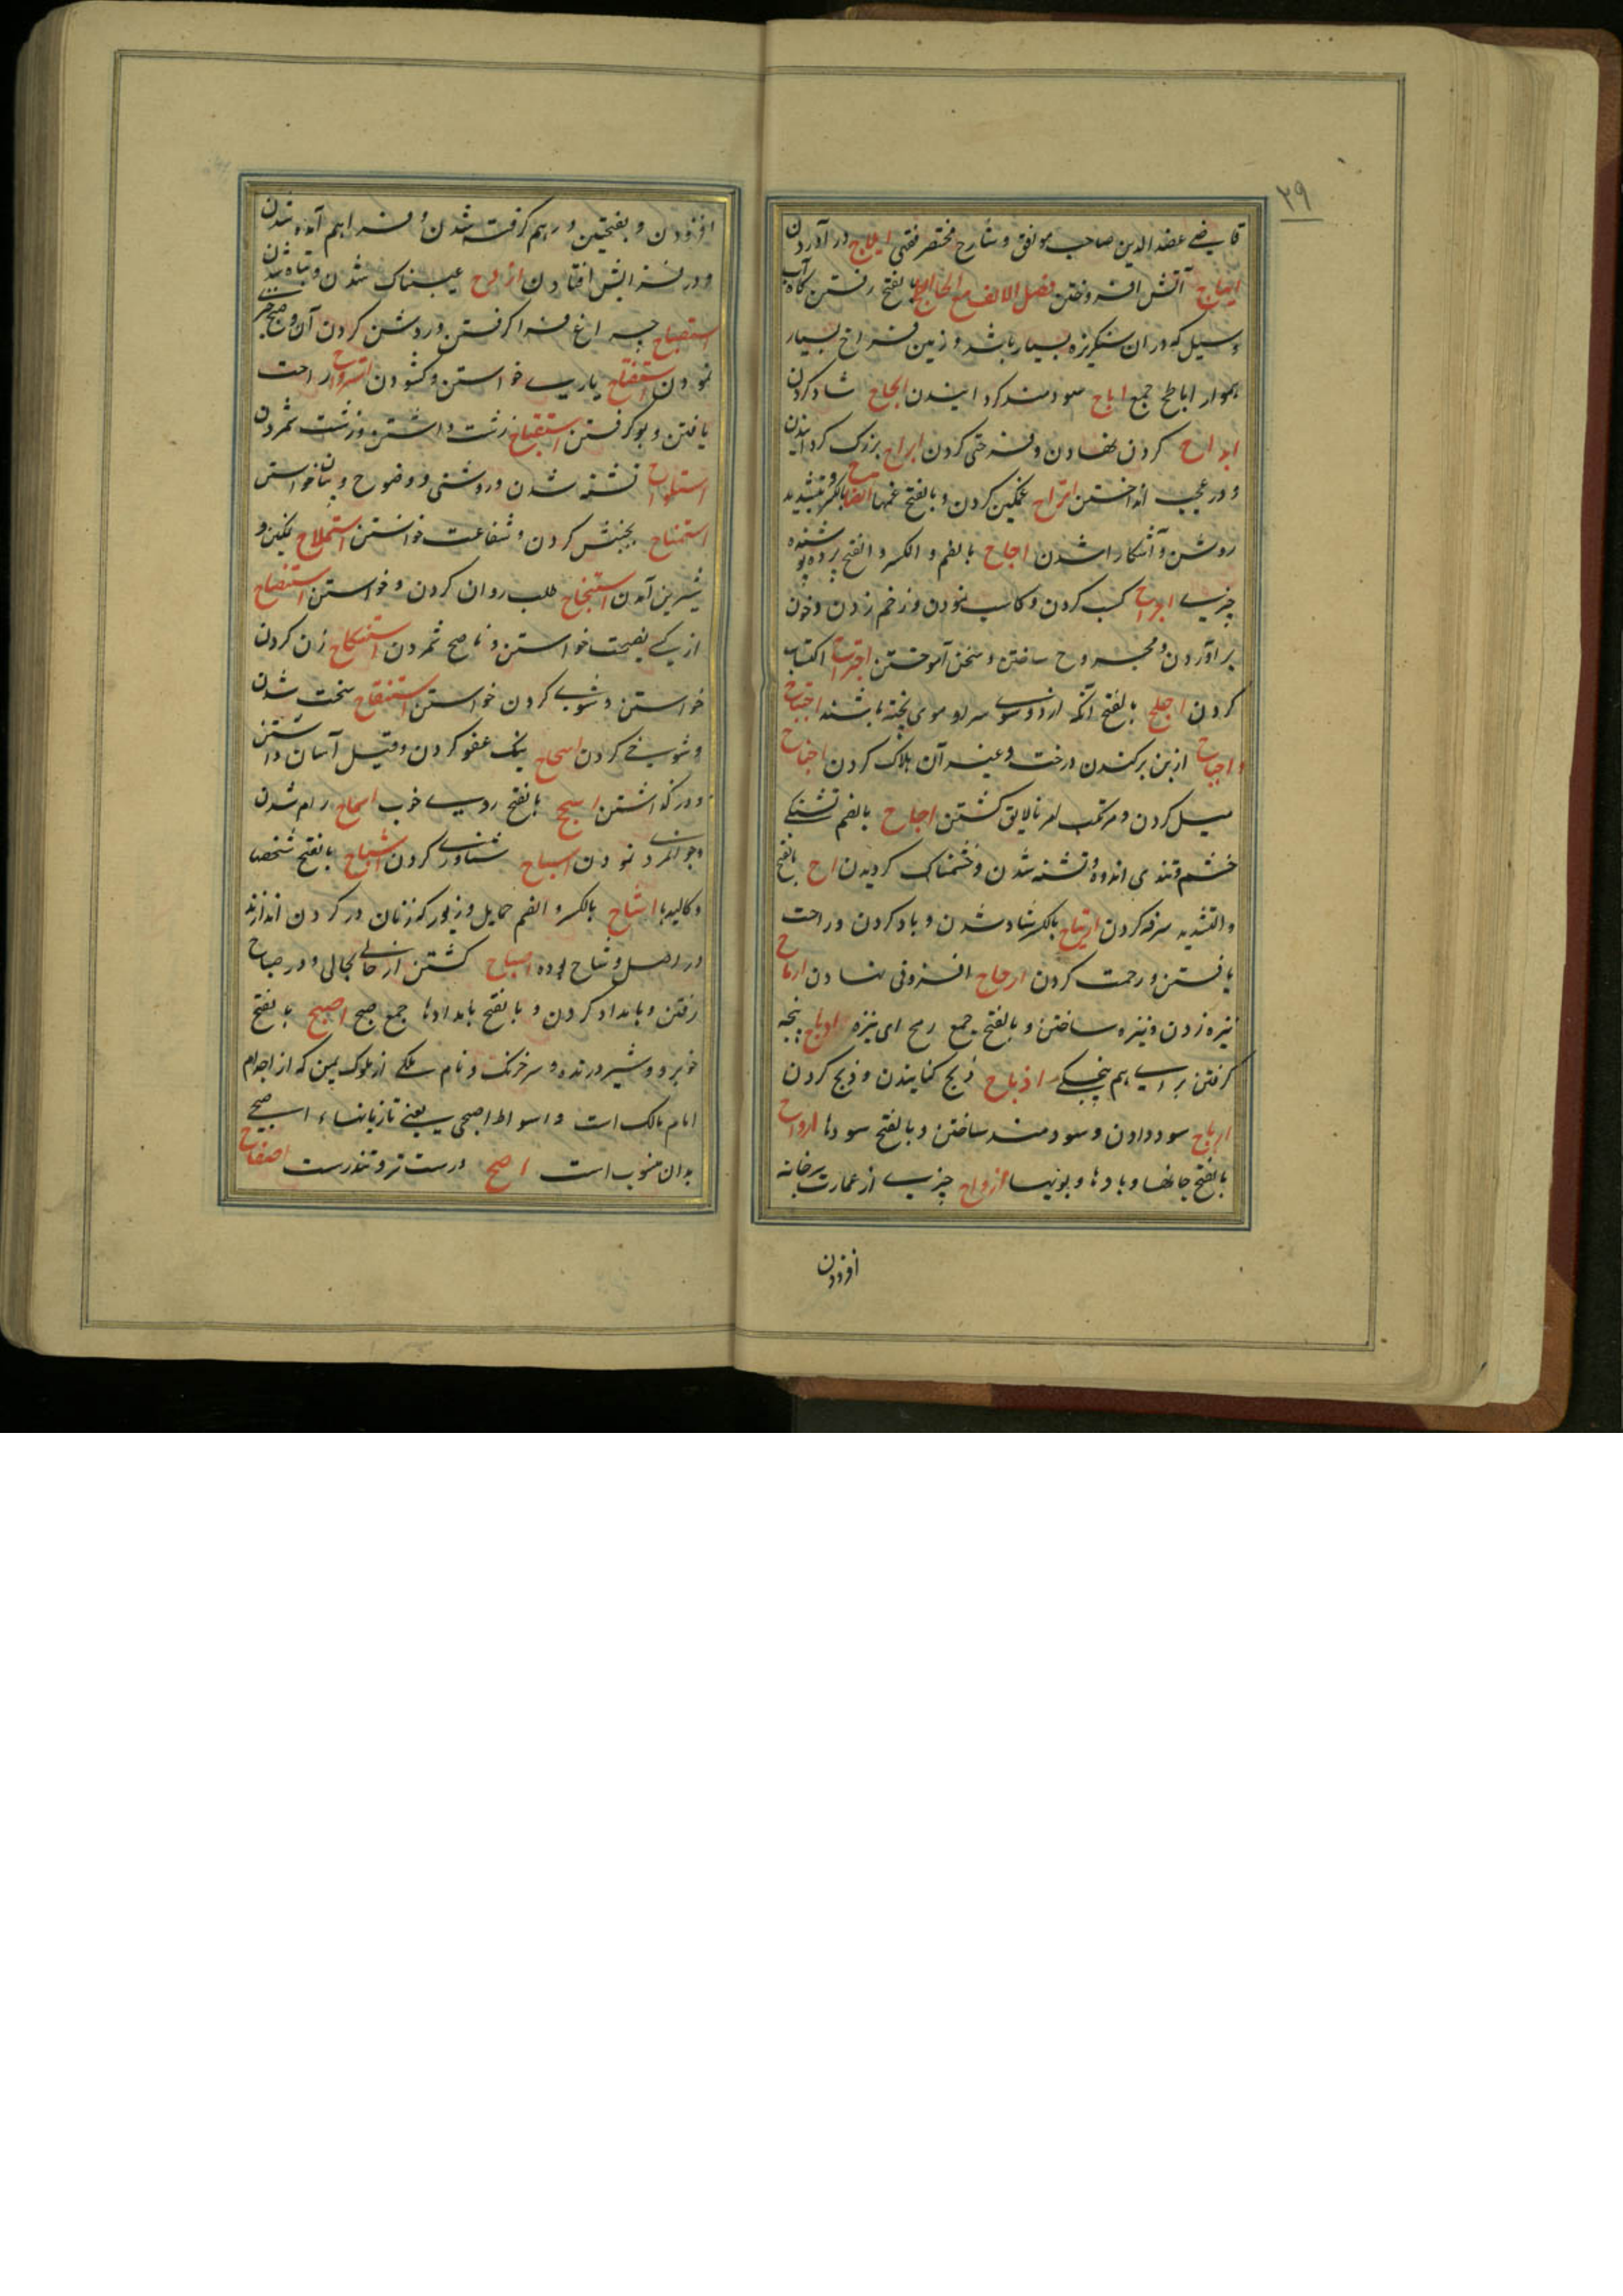 ۲۹
قاضی عضد الدین صاحب مواقف و شارح مختصر فقهی ایلاج در آوردن
آتش افروختن فصل الالف مع الحا ابطح بالفتح رفتن گاه آب
و سیل که در ان سنگریزه بسیار باشد و زمین فراخ بسیار
هموار اباطح جمع ارباح سودمند کردانیدن شاد کردن
کردن نهادن و فرختی کردن ابراح بزرگ کردانیدن
و در عجب انداختن اتراح غمگین کردن و بالفتح غمها بالکسر و تشدید
روشن و آشکارا شدن اجاح بالضم و الکسر و الفتح پرده پوشنده
چیزی اجراح کسب کردن و کاسب نمودن و زخم زدن و خون
بر آوردن و مجروح ساختن و سخن آموختن اجتراح اکتساب
کردن اجلح بالفتح آنکه از دو سوی سر او موی نباشند اجتیاح
و اجباح از بن برکندن درخت و غیر آن هلاک کردن اجناح
میل کردن و مرتکب امر نالایق کشتن احاح بالضم تشنگی
خشم و تندی اندوه و تشنه شدن و خشمناک کردیدن اح بالفتح
و التشدید سرفه کردن ارتیاح بالکسر شاد شدن و یاد کردن و راحت
یافتن و رحمت کردن ارجاح افزونی نهادن ارماح
نیزه زدن و نیزه ساختن و بالفتح جمع رمح ای نیزه پنجه
گرفتن برای هم پنجگی اذباح ذبح کنانیدن و ذبح کردن
ارباح سود دادن و سودمند ساختن و بالفتح سودها ارواح
بالفتح جانها و بادها و بویها ازواح چیزی از عمارت بر خانه
افزودن
افزودن و بفتحتین در هم گرفته شدن و فراهم آمده شدن
و در فزایش افتادن عیبناک شدن و تباه شدن
استصباح چراغ فرا گرفتن و روشن کردن آن و صبح
نمودن استفتاح یاری خواستن و گشودن استرواح راحت
یافتن و بو گرفتن استقباح زشت داشتن و زشت شمردن
تشنه شدن و روشنی و وضوح و بیان خواستن
استمناح بخشش کردن و شفاعت خواستن استملاح نمکین و
شیرین آمدن استنجاح طلب روان کردن و خواستن استنصاح
از کسی نصیحت خواستن و ناصح شمردن استنکاح زن کردن
خواستن و شوی کردن خواستن استنقاح سخت شدن
و شوخی کردن اسجاح نیک عفو کردن و قتیل آسان داشتن
و در گذاشتن اسجح بالفتح روی خوب اسماح رام شدن
و جوانمردی نمودن اسباح شناوری کردن اشباح بالفتح شخصها
و کالبدها اشاح بالکسر و الضم حمایل و زیور که زنان در گردن اندازند
در اصل وشاح بوده اصباح گشتن از حالی بحالی و در صباح
رفتن و بامداد کردن و بالفتح بامدادها جمع صبح اصبح بالفتح
خوبرو و شیر درنده و سرخ رنگ و نام ملکی از ملوک یمن که از اجداد
امام مالک است و اسواط اصبحی یعنی تازیانهاء اصبحی
بدان منسوب است اصح درست تر و تندرست اصفاح